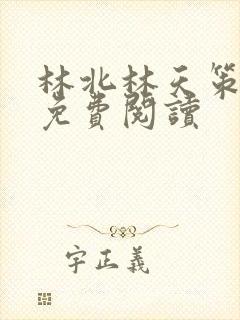 林北林天策
免費閱讀
字正義